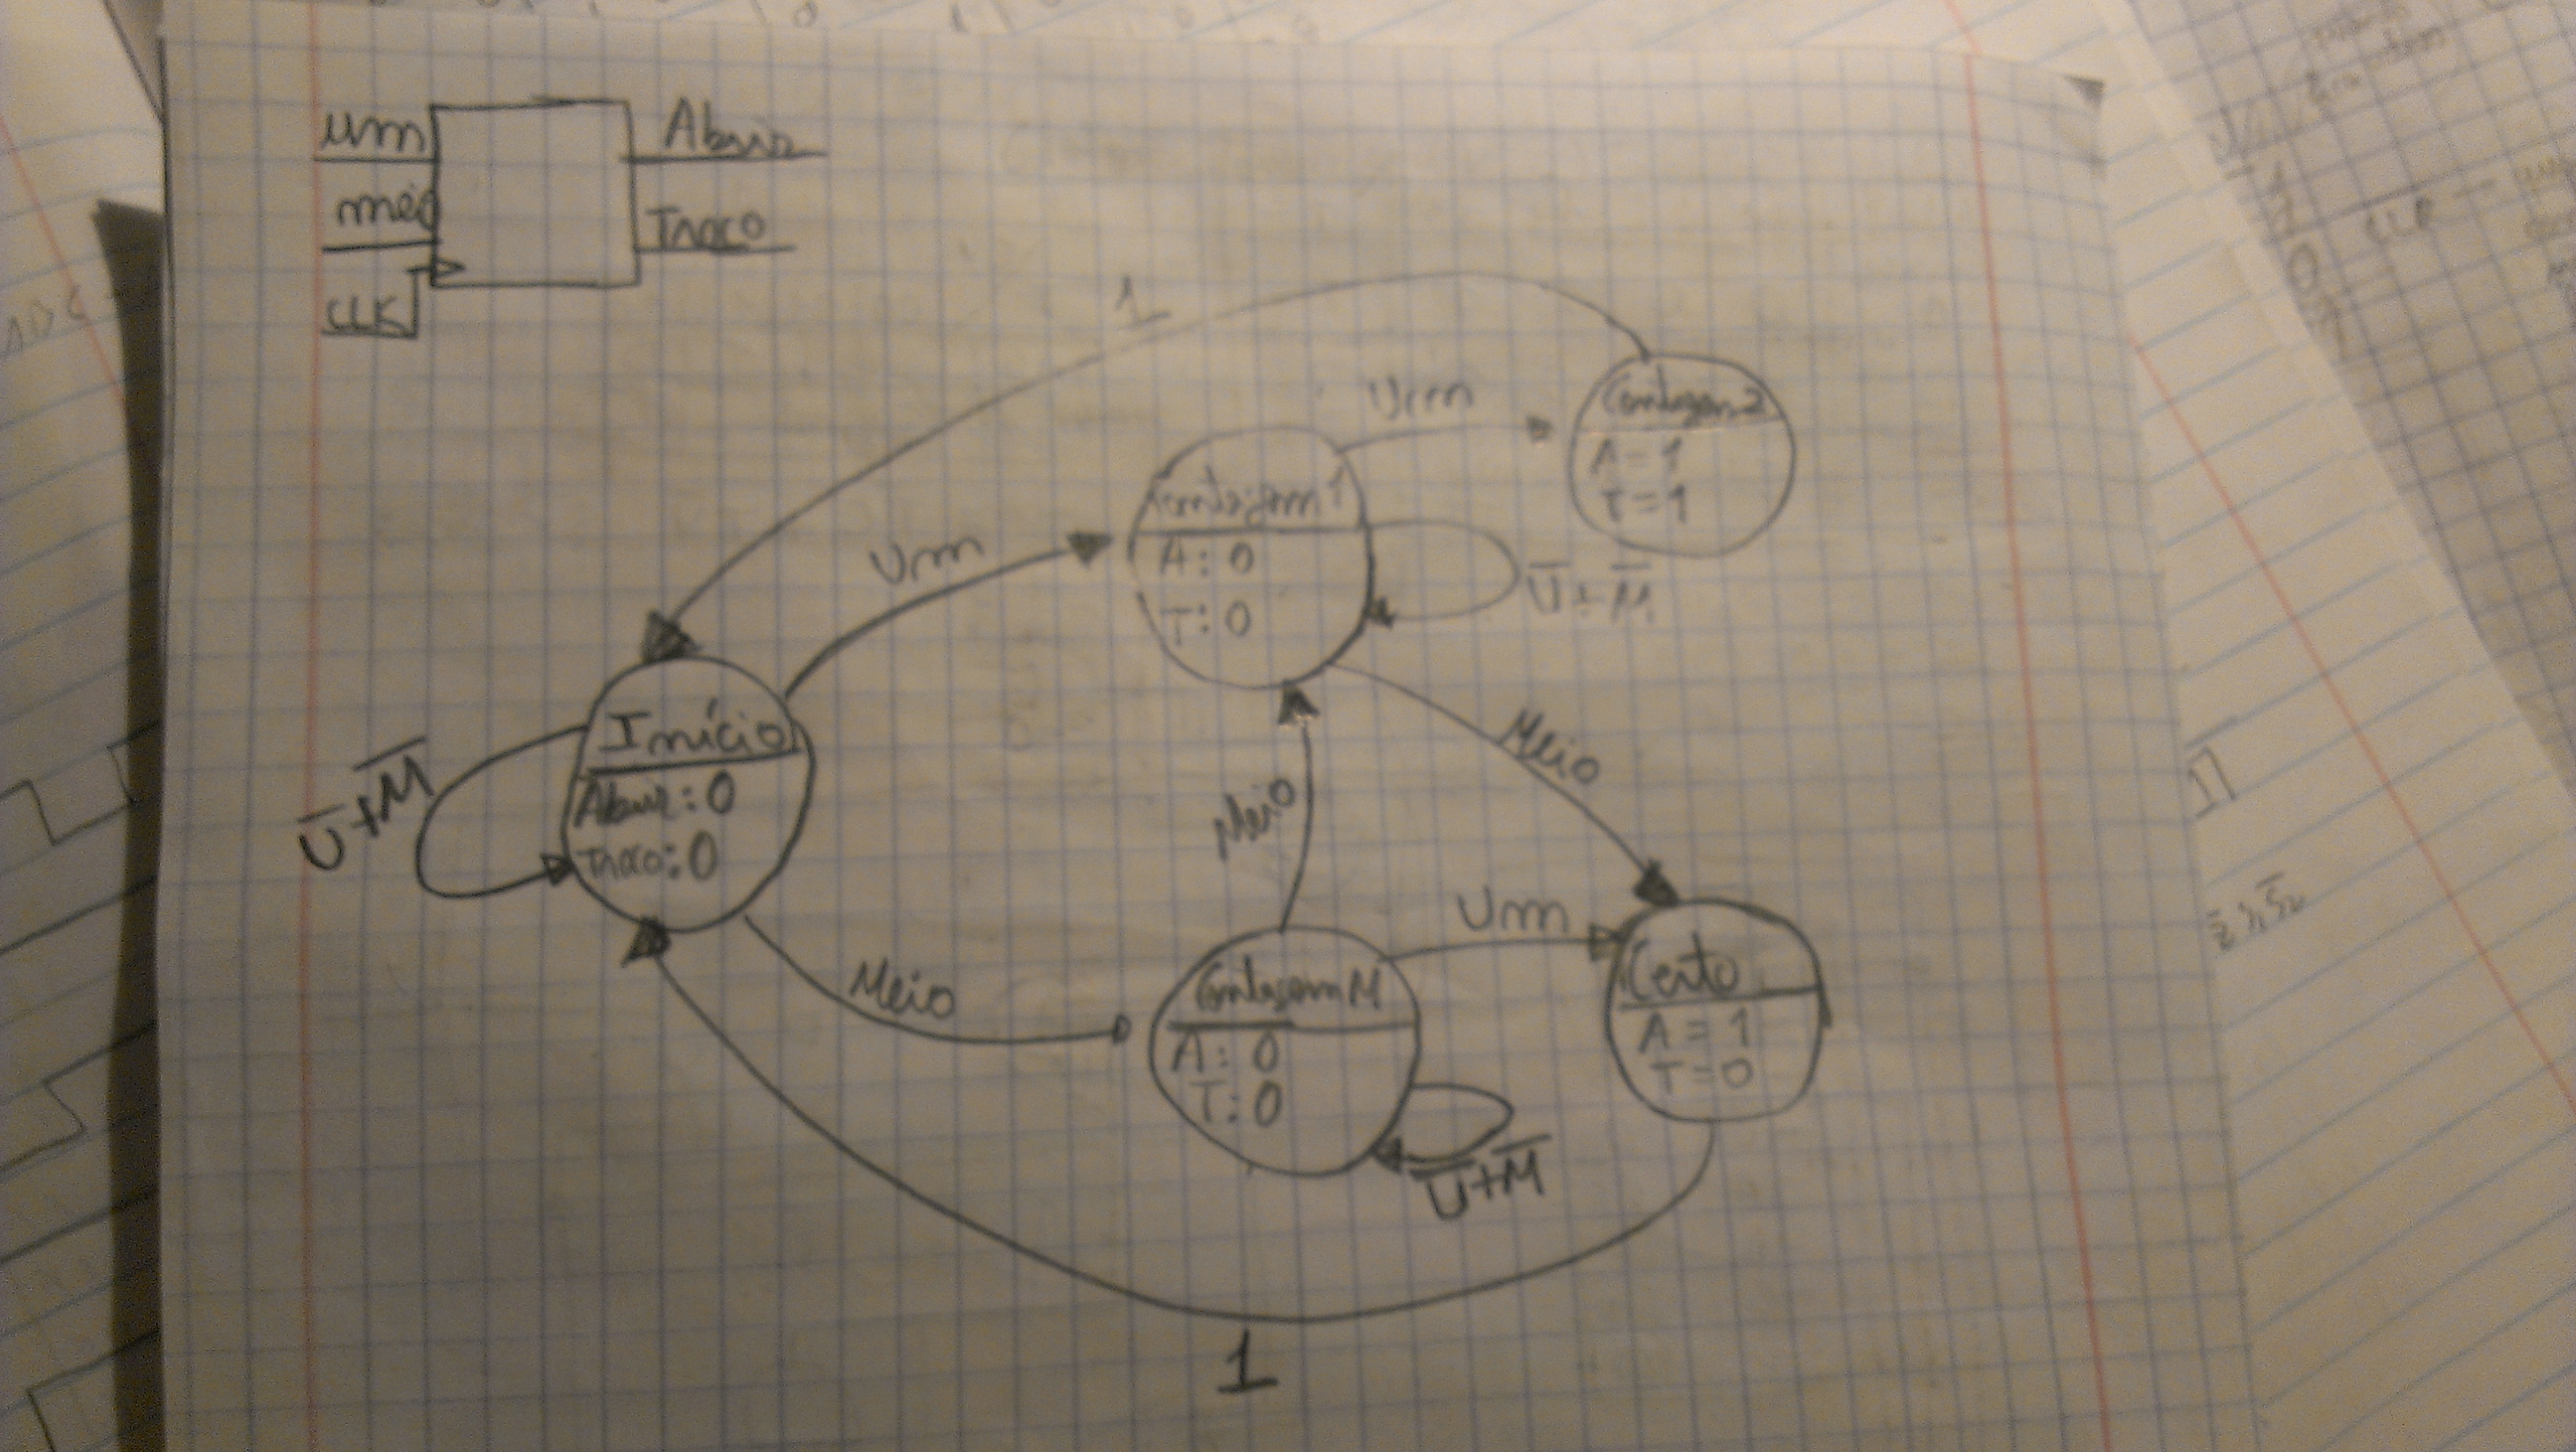 um
meio
CLK
Abrir
Troco
1
Um
Contagem 2
A = 1
T = 1
Contagem 1
A : 0
T : 0
U̅ + M̅
Um
Início
Abrir : 0
Troco : 0
U̅ + M̅
Meio
Meio
Meio
Um
Contagem M
A : 0
T : 0
U̅ + M̅
Certo
A = 1
T = 0
1
CLK